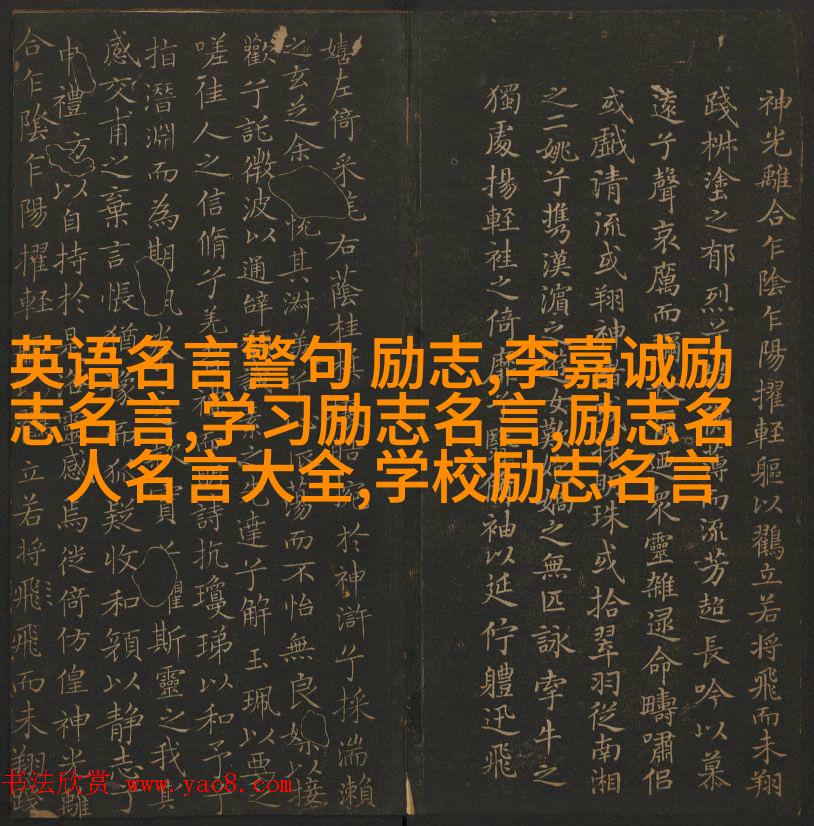 神光離合乍陰乍陽擢輕軀以鶴立若將飛而未翔
踐椒塗之郁烈而流芳超長吟以慕
遠兮聲哀厲而眾靈雜遝命疇嘯侶
或戲清流或翔神珠或拾翠羽從南湘
之二姚兮攜漢濱之無匹詠牽牛之
獨處揚輕袿之倚袖以延佇體迅飛
嬉左倚采旄右蔭桂於神滸兮採湍瀨
之玄芝余悅其淑而不怡無良媒以接
歡兮託微波以通辭達兮解玉珮以要之
嗟佳人之信脩兮羌詩抗瓊珶以和予兮
指潛淵而為期斯靈之我其
感交甫之棄言悵猶狐疑收和顏以静志兮
申禮方以自持於是感焉徙倚仿偟神光離
合乍陰乍陽擢輕立若將飛飛而未翔踐
英语名言警句 励志,李嘉诚励
志名言,学习励志名言,励志名
人名言大全,学校励志名言
书法欣赏 www.yac8.com